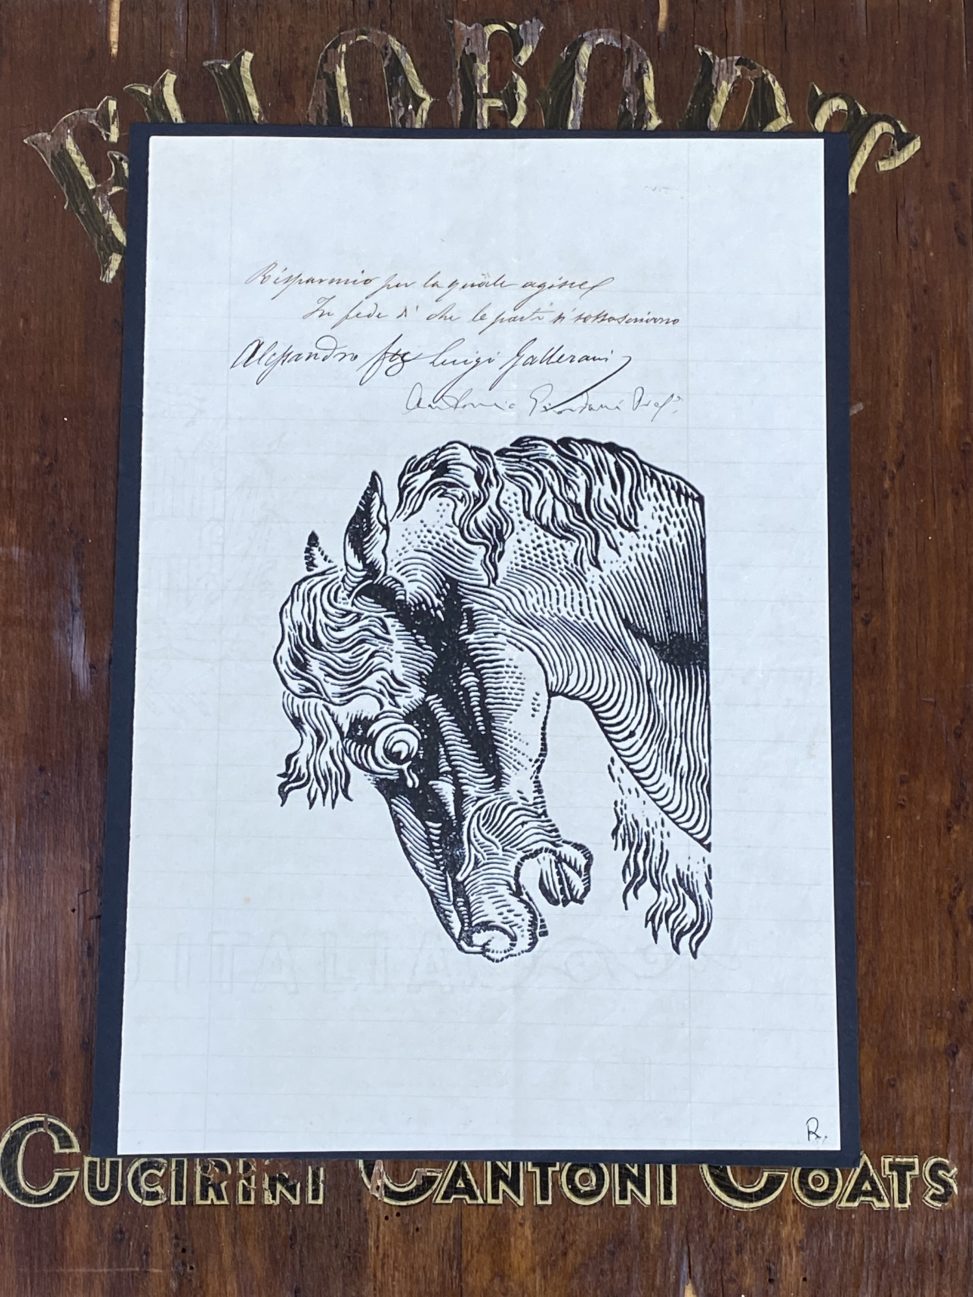 FILOFORT
Risparmio per la quale agisce
In fede di che le parti si sottoscrivono
Alessandro Luigi Gallerani
Antonio Giordani
R.
CUCIRINI CANTONI COATS